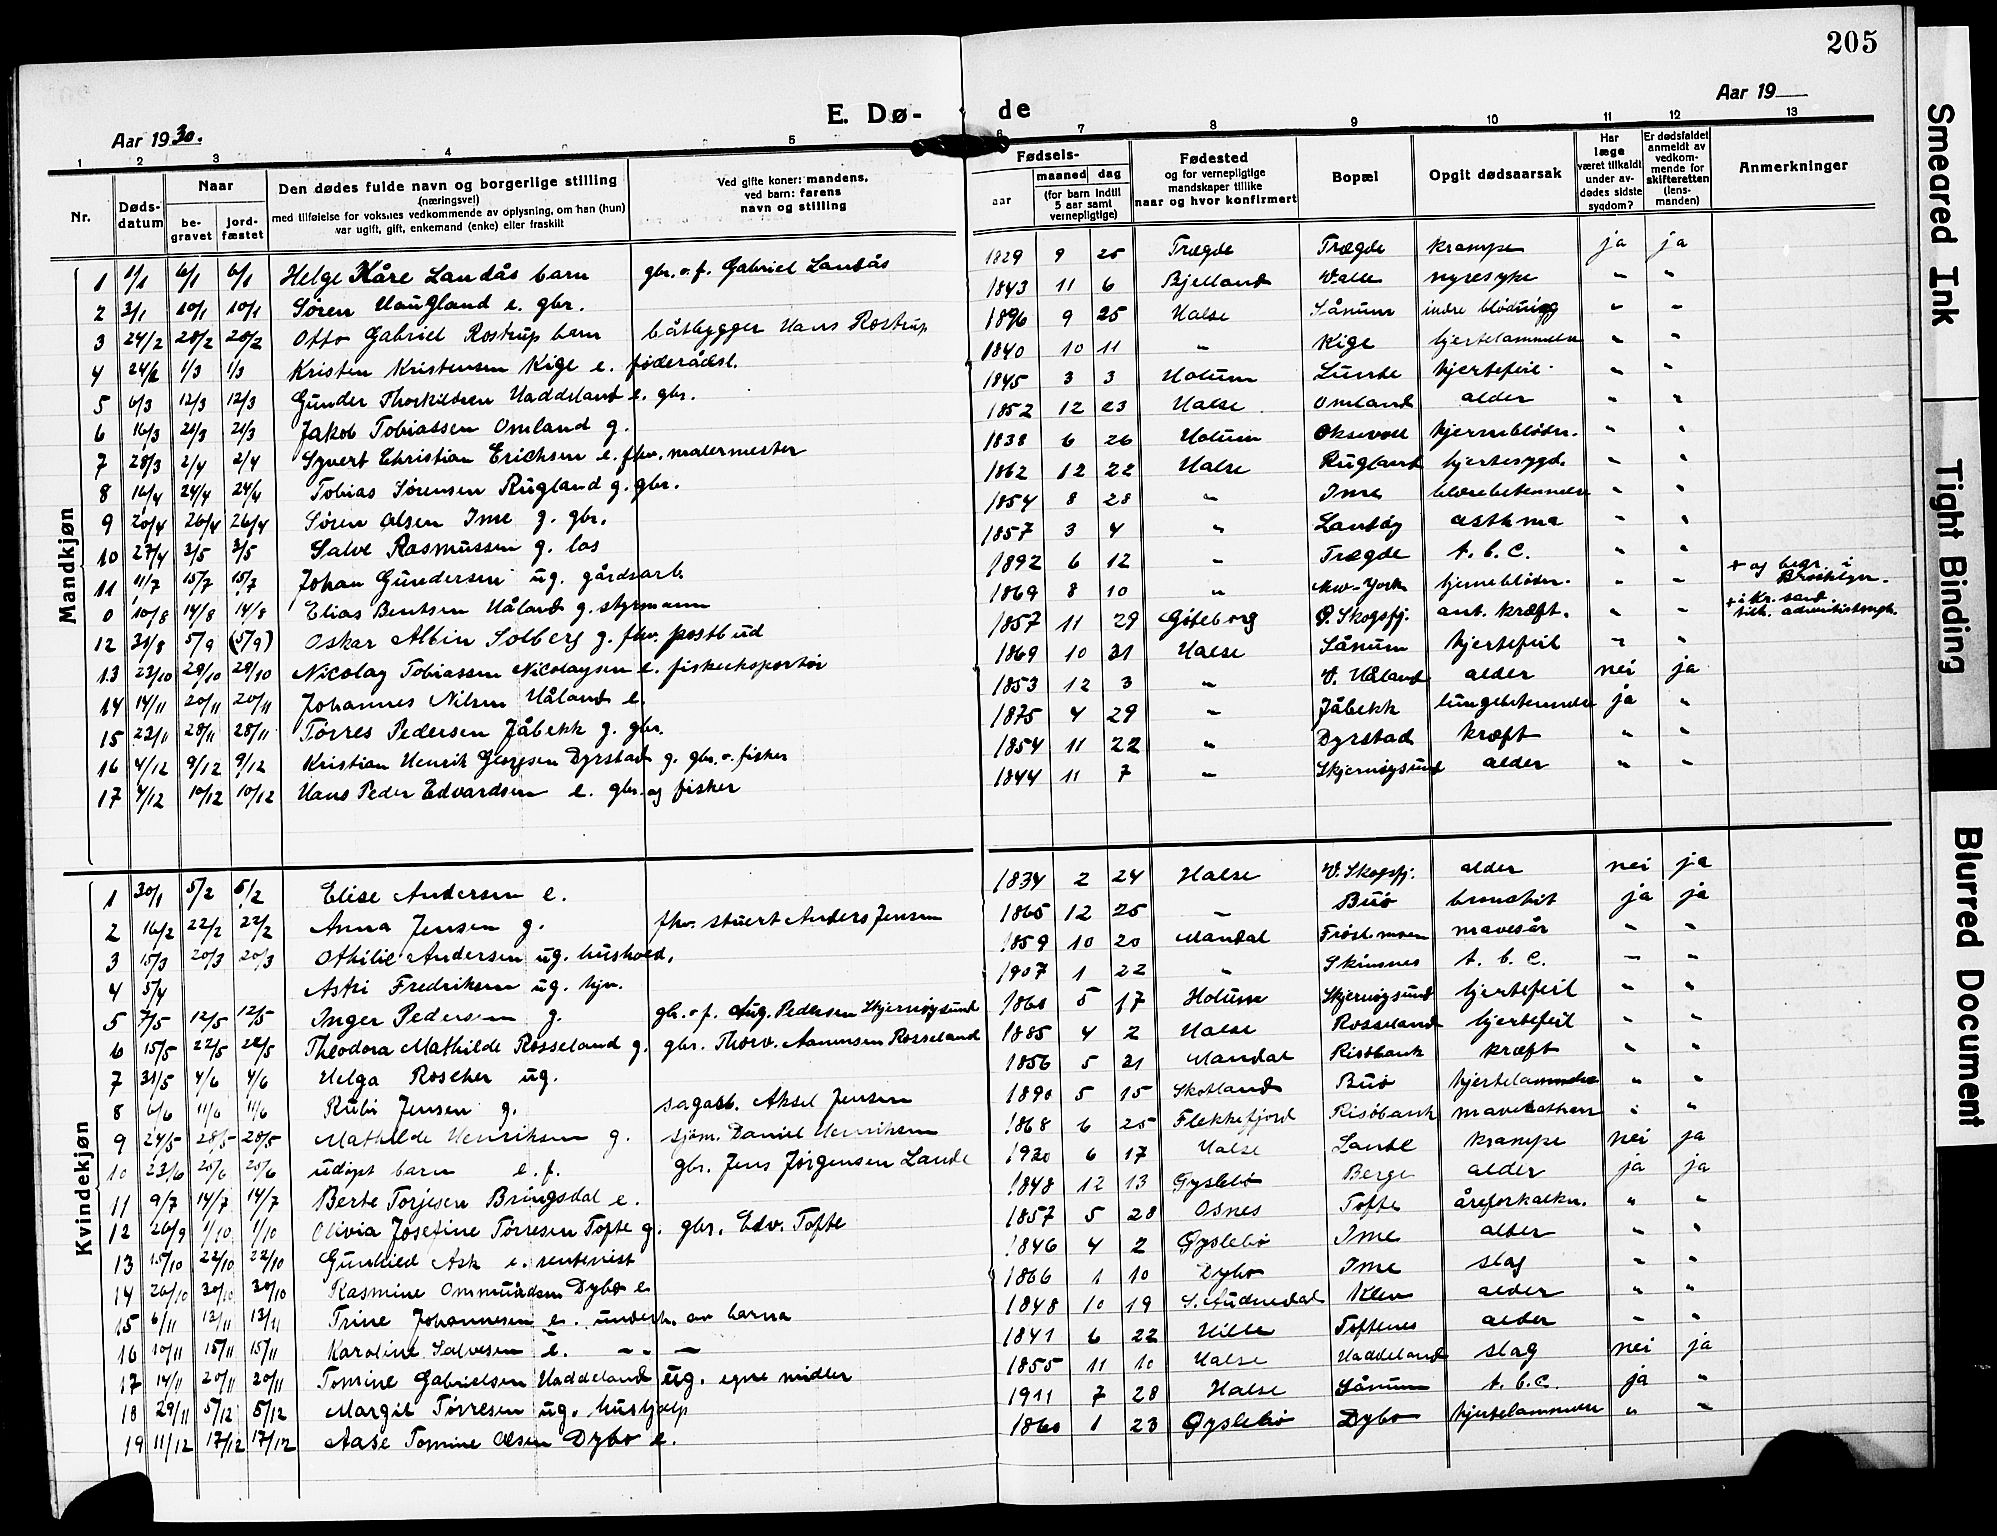 205
Aar 1930.
E. Dø-
de
Aar 19
1 2 3 4 5 6 7 8 9 10 11 12 13
Nr.
Døds-
datum
Naar
be-
gravet
jord-
fæstet
Den dødes fulde navn og borgerlige stilling
(næringsvei)
med tilføielse for voksnes vedkommende av oplysning, om han (hun)
var ugift, gift, enkemand (enke) eller fraskilt
Ved gifte koner: mandens,
ved barn: farens
navn og stilling
Fødsels-
aar
maaned dag
(for barn indtil
5 aar samt
vernepligtige)
Fødested
og for vernepligtige
mandskaper tillike
naar og hvor konfirmert
Bopæl
Opgit dødsaarsak
Har
læge
været tilkaldt
under av-
dødes sidste
sygdom?
Er dødsfaldet
anmeldt av
vedkom-
mende for
skifteretten
(lens-
manden)
Anmerkninger
Mandkjøn
1 1/1 6/1 6/1 Helge Kåre Landås barn gbr. o. f. Gabriel Landås 1829 9 25 Trægde Trægde krampe ja ja
2 3/1 10/1 10/1 Søren Haugland e. gbr. 1843 11 6 Bjelland Valle nyresyke " "
3 24/2 28/2 28/2 Otto Gabriel Rostrup barn båtbygger Hans Rostrup 1896 9 25 Halse Sånum indre blødning " "
4 24/2 1/3 1/3 Kristen Kristensen Kige e. føderådsl. 1840 10 11 " Kige hjertelammelse " "
5 6/3 12/3 12/3 Gunder Thorkildsen Haddeland e. gbr. 1845 3 3 Holum Lunde hjertefeil " "
6 16/3 21/3 21/3 Jakob Tobiassen Omland g. 1852 12 23 Halse Omland alder " "
7 28/3 2/4 2/4 Syvert Christian Erichsen e. fhv. malermester 1838 6 26 Holum Oksevoll hjerneblødn. " "
8 16/4 24/4 24/4 Tobias Sørensen Rugland g. gbr. 1862 12 22 Halse Rugland hjertesygd. " "
9 20/4 26/4 26/4 Søren Olsen Ime g. gbr. 1854 8 28 " Ime blærebetennelse " "
10 27/4 3/5 3/5 Salve Rasmussen g. los 1857 3 4 " Landøy asthma " "
11 11/7 15/7 15/7 Johan Gundersen ug. gårdsarb. 1892 6 12 " Trægde t. b. c. " "
0 10/8 14/8 14/8 Elias Bentsen Håland g. styrmann 1869 8 10 " New-York hjerneblødn. " " + og begr. i Brooklyn.
12 31/8 5/9 (5/9) Oskar Albin Solberg g. fhv. postbud 1857 11 29 Göteborg Ø. Skogsfj. ant. kræft. " " + i Kr. sand.
13 23/10 29/10 29/10 Nicolay Tobiassen Nicolaysen e. fiskeeksportør 1869 10 31 Halse Sånum hjertefeil " "
14 14/11 20/11 20/11 Johannes Nilsen Håland e. 1853 12 3 " V. Håland alder nei ja
15 23/11 28/11 28/11 Tørres Pedersen Jåbekk g. gbr. 1875 4 29 " Jåbekk lungebetennelse ja "
16 4/12 9/12 9/12 Kristian Henrik Georgsen Dyrstad g. gbr. o. fisker 1854 11 22 " Dyrstad kræft " "
17 4/12 10/12 10/12 Hans Peder Edvardsen e. gbr. og fisker 1844 11 7 " Skjernøysund alder " "
Kvindekjøn
1 30/1 5/2 5/2 Elise Andersen e. 1834 2 24 Halse V. Skogsfj. alder nei ja
2 16/2 22/2 22/2 Anna Jensen g. fhv. stuert Anders Jensen 1865 12 25 " Buø bronchit ja ja
3 15/3 20/3 20/3 Othilie Andersen ug. hushold. 1859 10 20 Mandal mavesår " "
4 5/4 Astri Fredriksen ug. hjv. 1907 1 22 " Skinsnes t. b. c. " "
5 7/5 12/5 12/5 Inger Pedersen g. gbr. o. f. Aug. Pedersen Skjernøysund 1860 5 17 Holum Skjernøysund hjertefeil " "
6 15/5 22/5 22/5 Theodora Mathilde Rosseland g. gbr. Thorv. Aanensen Rosseland 1885 4 2 Halse Rosseland hjertefeil " "
7 31/5 4/6 4/6 Helga Roscher ug. 1856 5 21 Mandal Risøbank kræft " "
8 6/6 11/6 11/6 Rubi Jensen g. sagarb. Aksel Jensen 1890 5 15 Skotland Buø hjertelammelse " "
9 24/5 28/5 28/5 Mathilde Henriksen g. sjøm. Daniel Henriksen 1868 6 25 Flekkefjord Risøbank mavekatharr " "
10 23/6 25/6 25/6 udøpt barn e. f. gbr. Jens Jørgensen Lande 1930 6 17 Halse Lande krampe nei ja
11 9/7 14/7 14/7 Berte Torjesen Bringsdal e. 1848 12 13 Øyslebø Berge alder ja ja
12 26/9 1/10 1/10 Olivia Josefine Tørresen Tofte g. gbr. Edv. Tofte 1857 5 28 Osnes Tofte åreforkalkn. " "
13 15/10 22/10 22/10 Gunhild Ask e. rentenist 1846 4 2 Øyslebø Ime alder " "
14 26/10 30/10 30/10 Rasmine Ommundsen Dybo e. 1866 1 10 Dybo Ime slag " "
15 6/11 13/11 13/11 Trine Johannesen e. underh. av barna 1848 10 19 S. Audnedal Klev alder " "
16 10/11 15/11 15/11 Karoline Salvesen e. " " 1841 6 22 Hille Toftenes alder " "
17 14/11 20/11 20/11 Tomine Gabrielsen Haddeland ug. egne midler 1855 11 10 Halse Haddeland slag nei ja
18 29/11 5/12 5/12 Margit Tørresen ug. hushjelp 1911 7 28 Halse Sånum t. b. c. ja "
19 11/12 17/12 17/12 Aase Tomine Olsen Dybo e. 1860 1 23 Øyslebø Dybo hjertelammelse " "
Smeared Ink
Tight Binding
Blurred Document